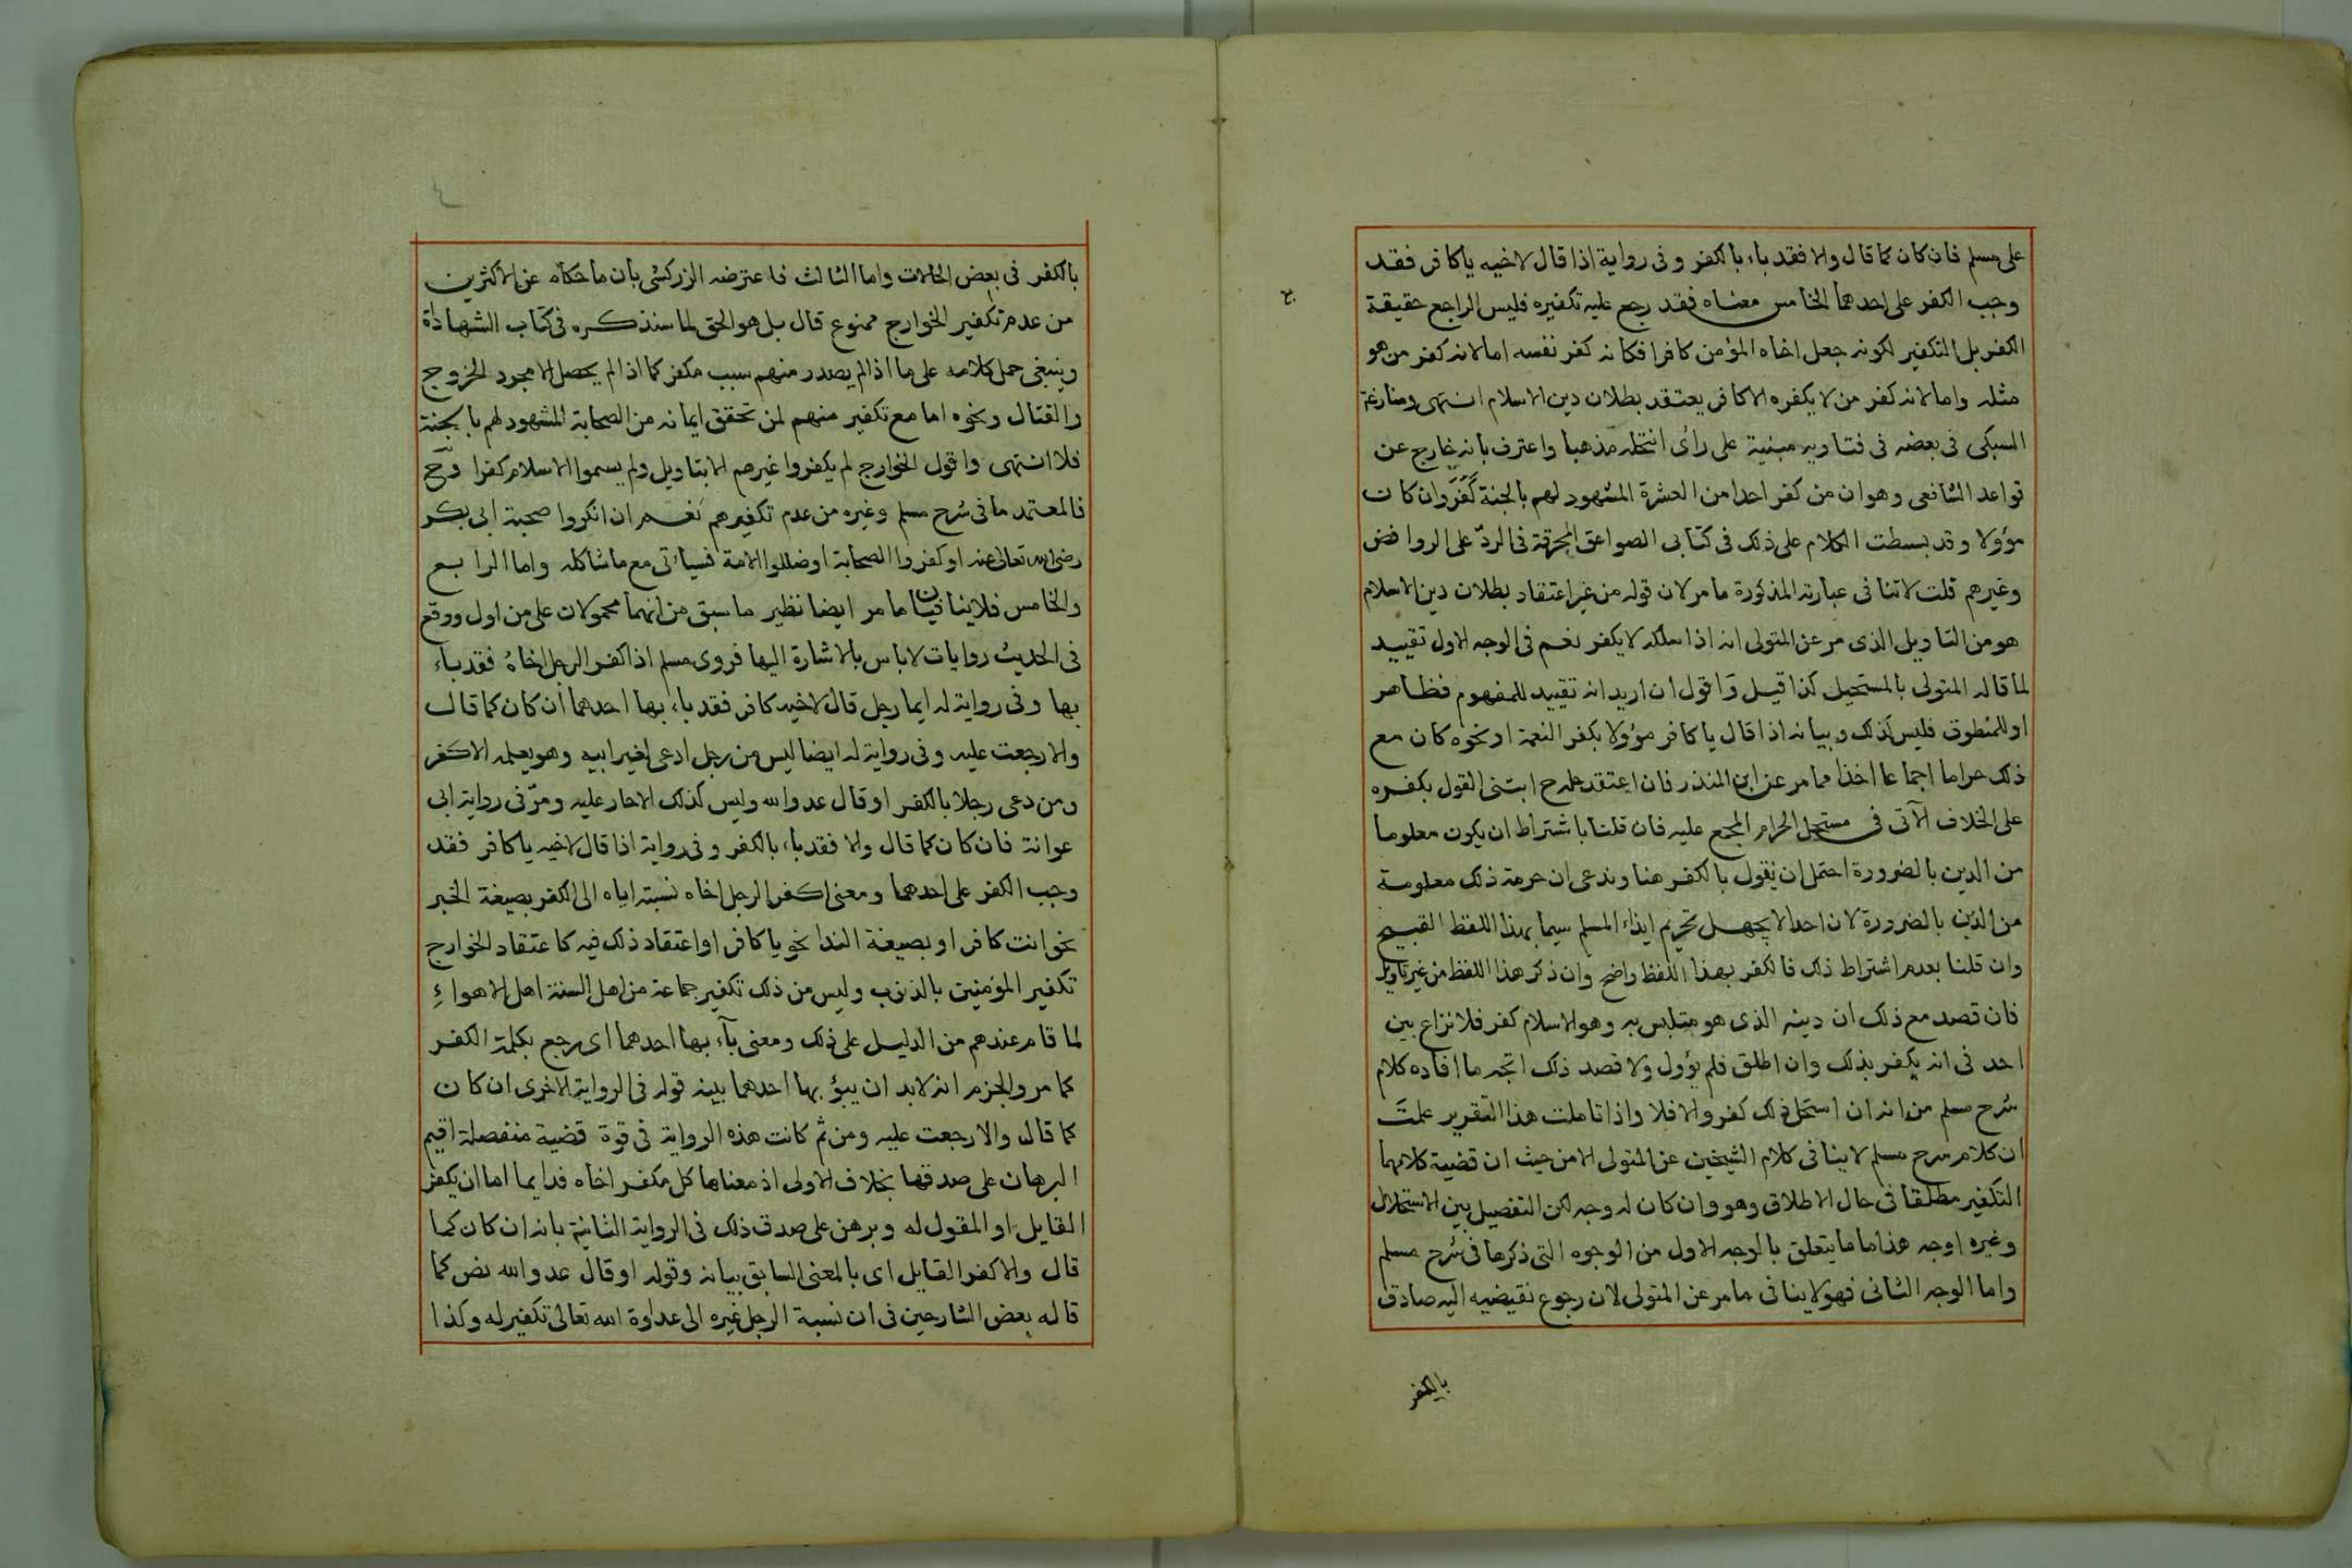 على مسلم فان كان كما قال والا فقد باء بالكفر وفى رواية اذا قال لاخيه ياكافر فقد
وجب الكفر على احدهما الخامس معناه فقد رجع عليه تكفيره فليس الراجع حقيقة
الكفر بل التكفير لكونه جعل اخاه المؤمن كافرا فكانه كفر نفسه اما لانه كفر من هو
مثله واما لانه كفر من لا يكفره الا كافر يعتقد بطلان دين الاسلام انتهى ومنازعة
السبكى فى بعضه فى فتاويه مبنية على رأى انتحله مذهبا واعترف بانه خارج عن
قواعد الشافعى وهو ان من كفر احدا من العشرة المشهود لهم بالجنة كَفَرَ وان كان
مؤولا وقد بسطت الكلام على ذلك فى كتابى الصواعق المحرقة فى الردّ على الروافض
وغيرهم قلت لا تنافى عبارته المذكورة ما مر لان قوله من غير اعتقاد بطلان دين الاسلام
هو من التاويل الذى مر عن المتولى انه اذا سلكه لا يكفر نعم فى الوجه الاول تقييد
لما قاله المتولى بالمستحيل كذا قيل واقول ان اريد انه تقييد للمفهوم فظاهر
او للمنطوق فليس كذلك وبيانه اذا قال يا كافر مؤولا بكفر النعمة او نحوه كان مع
ذلك حراما اجماعا اخذا مما مر عن ابن المنذر فان اعتقد حله ح ابتنى القول بكفره
على الخلاف الآتى فى مستحل الحرام المجمع عليه فان قلنا باشتراط ان يكون معلوما
من الدين بالضرورة احتمل ان نقول بالكفر هنا وندعى ان حرمة ذلك معلومة
من الدين بالضرورة لان احدا لا يجهل تحريم ايذاء المسلم سيما بهذا اللفظ القبيح
وان قلنا بعدم اشتراط ذلك فالكفر بهذا اللفظ واضح وان ذكر هذا اللفظ من غير تاويل
فان قصد مع ذلك ان دينه الذى هو متلبس به وهو الاسلام كفر فلا نزاع بين
احد فى انه يكفر بذلك وان اطلق فلم يؤول ولا قصد ذلك اتجه ما افاده كلام
شرح مسلم من انه ان استحل ذلك كفر والا فلا واذا تاملت هذا التقرير علمت
ان كلام شرح مسلم لا ينافى كلام الشيخين عن المتولى الا من حيث ان قضية كلامهما
التكفير مطلقا فى حال الاطلاق وهو وان كان له وجه لكن التفصيل بين الاستحلال
وغيره اوجه هذا ما يتعلق بالوجه الاول من الوجوه التى ذكرها فى شرح مسلم
واما الوجه الثانى فهو لا ينافى ما مر عن المتولى لان رجوع نقيضيه اليه صادق
بالكفر
بالكفر فى بعض الحالات واما الثالث فاعترضه الزركشى بان ما حكاه عن الاكثرين
من عدم تكفير الخوارج ممنوع قال بل هو الحق لما سنذكره فى كتاب الشهاداة
وينبغى حمل كلامه على ما اذا لم يصدر منهم سبب مكفر كما اذا لم يحصل الا مجرد الخروج
والقتال ونحوه اما مع تكفير منهم لمن تحقق ايمانه من الصحابة المشهود لهم بالجنة
فلا انتهى واقول الخوارج لم يكفروا غيرهم الا بتاويل ولم يسموا الاسلام كفرا وح
فالمعتمد ما فى شرح مسلم وغيره من عدم تكفيرهم نعم ان انكروا صحبة ابى بكر
رضى الله تعالى عنه او كفروا الصحابة او ضللوا الامة فسيأتى مع ما شاكله واما الرابع
والخامس فلا ينافيان ما مر ايضا نظير ما سبق من انهما محمولان على من اول ووقع
فى الحديث روايات لا باس بالاشارة اليها فروى مسلم اذا كفر الرجل اخاهُ فقد باء
بها وفى رواية له ايما رجل قال لاخيه كافر فقد باء بها احدهما ان كان كما قال
والا رجعت عليه وفى رواية له ايضا ليس من رجل ادعى لغير ابيه وهو يعلمه الا كفر
ومن دعى رجلا بالكفر او قال عدو الله وليس كذلك الا حار عليه ومرّ فى رواية ابى
عوانة فان كان كما قال والا فقد باء بالكفر وفى رواية اذا قال لاخيه ياكافر فقد
وجب الكفر على احدهما ومعنى كفر الرجل اخاه نسبته اياه الى الكفر بصيغة الخبر
نحو انت كافر او بصيغة الندا نحو يا كافر او اعتقاد ذلك فيه كاعتقاد الخوارج
تكفير المؤمنين بالذنوب وليس من ذلك تكفير جماعة من اهل السنة اهل الاهواءِ
لما قام عندهم من الدليل على ذلك ومعنى بآء بها احدهما اى رجع بكلمة الكفر
كما مر والجزم انه لابد ان يبؤ بها احدهما بينه قوله فى الرواية الاخرى ان كان
كما قال والا رجعت عليه ومن ثم كانت هذه الرواية فى قوة قضية منفصلة اقيم
البرهان على صدقها بخلاف الاولى اذ معناها كل مكفر اخاه فدايما اما ان يكفر
القايل او المقول له وبرهن على صدق ذلك فى الرواية الثانية بانه ان كان كما
قال والا كفر القايل اى بالمعنى السابق بيانه وقوله او قال عدو الله نص كما
قاله بعض الشارحين فى ان نسبة الرجل غيره الى عداوة الله تعالى تكفير له وكذا